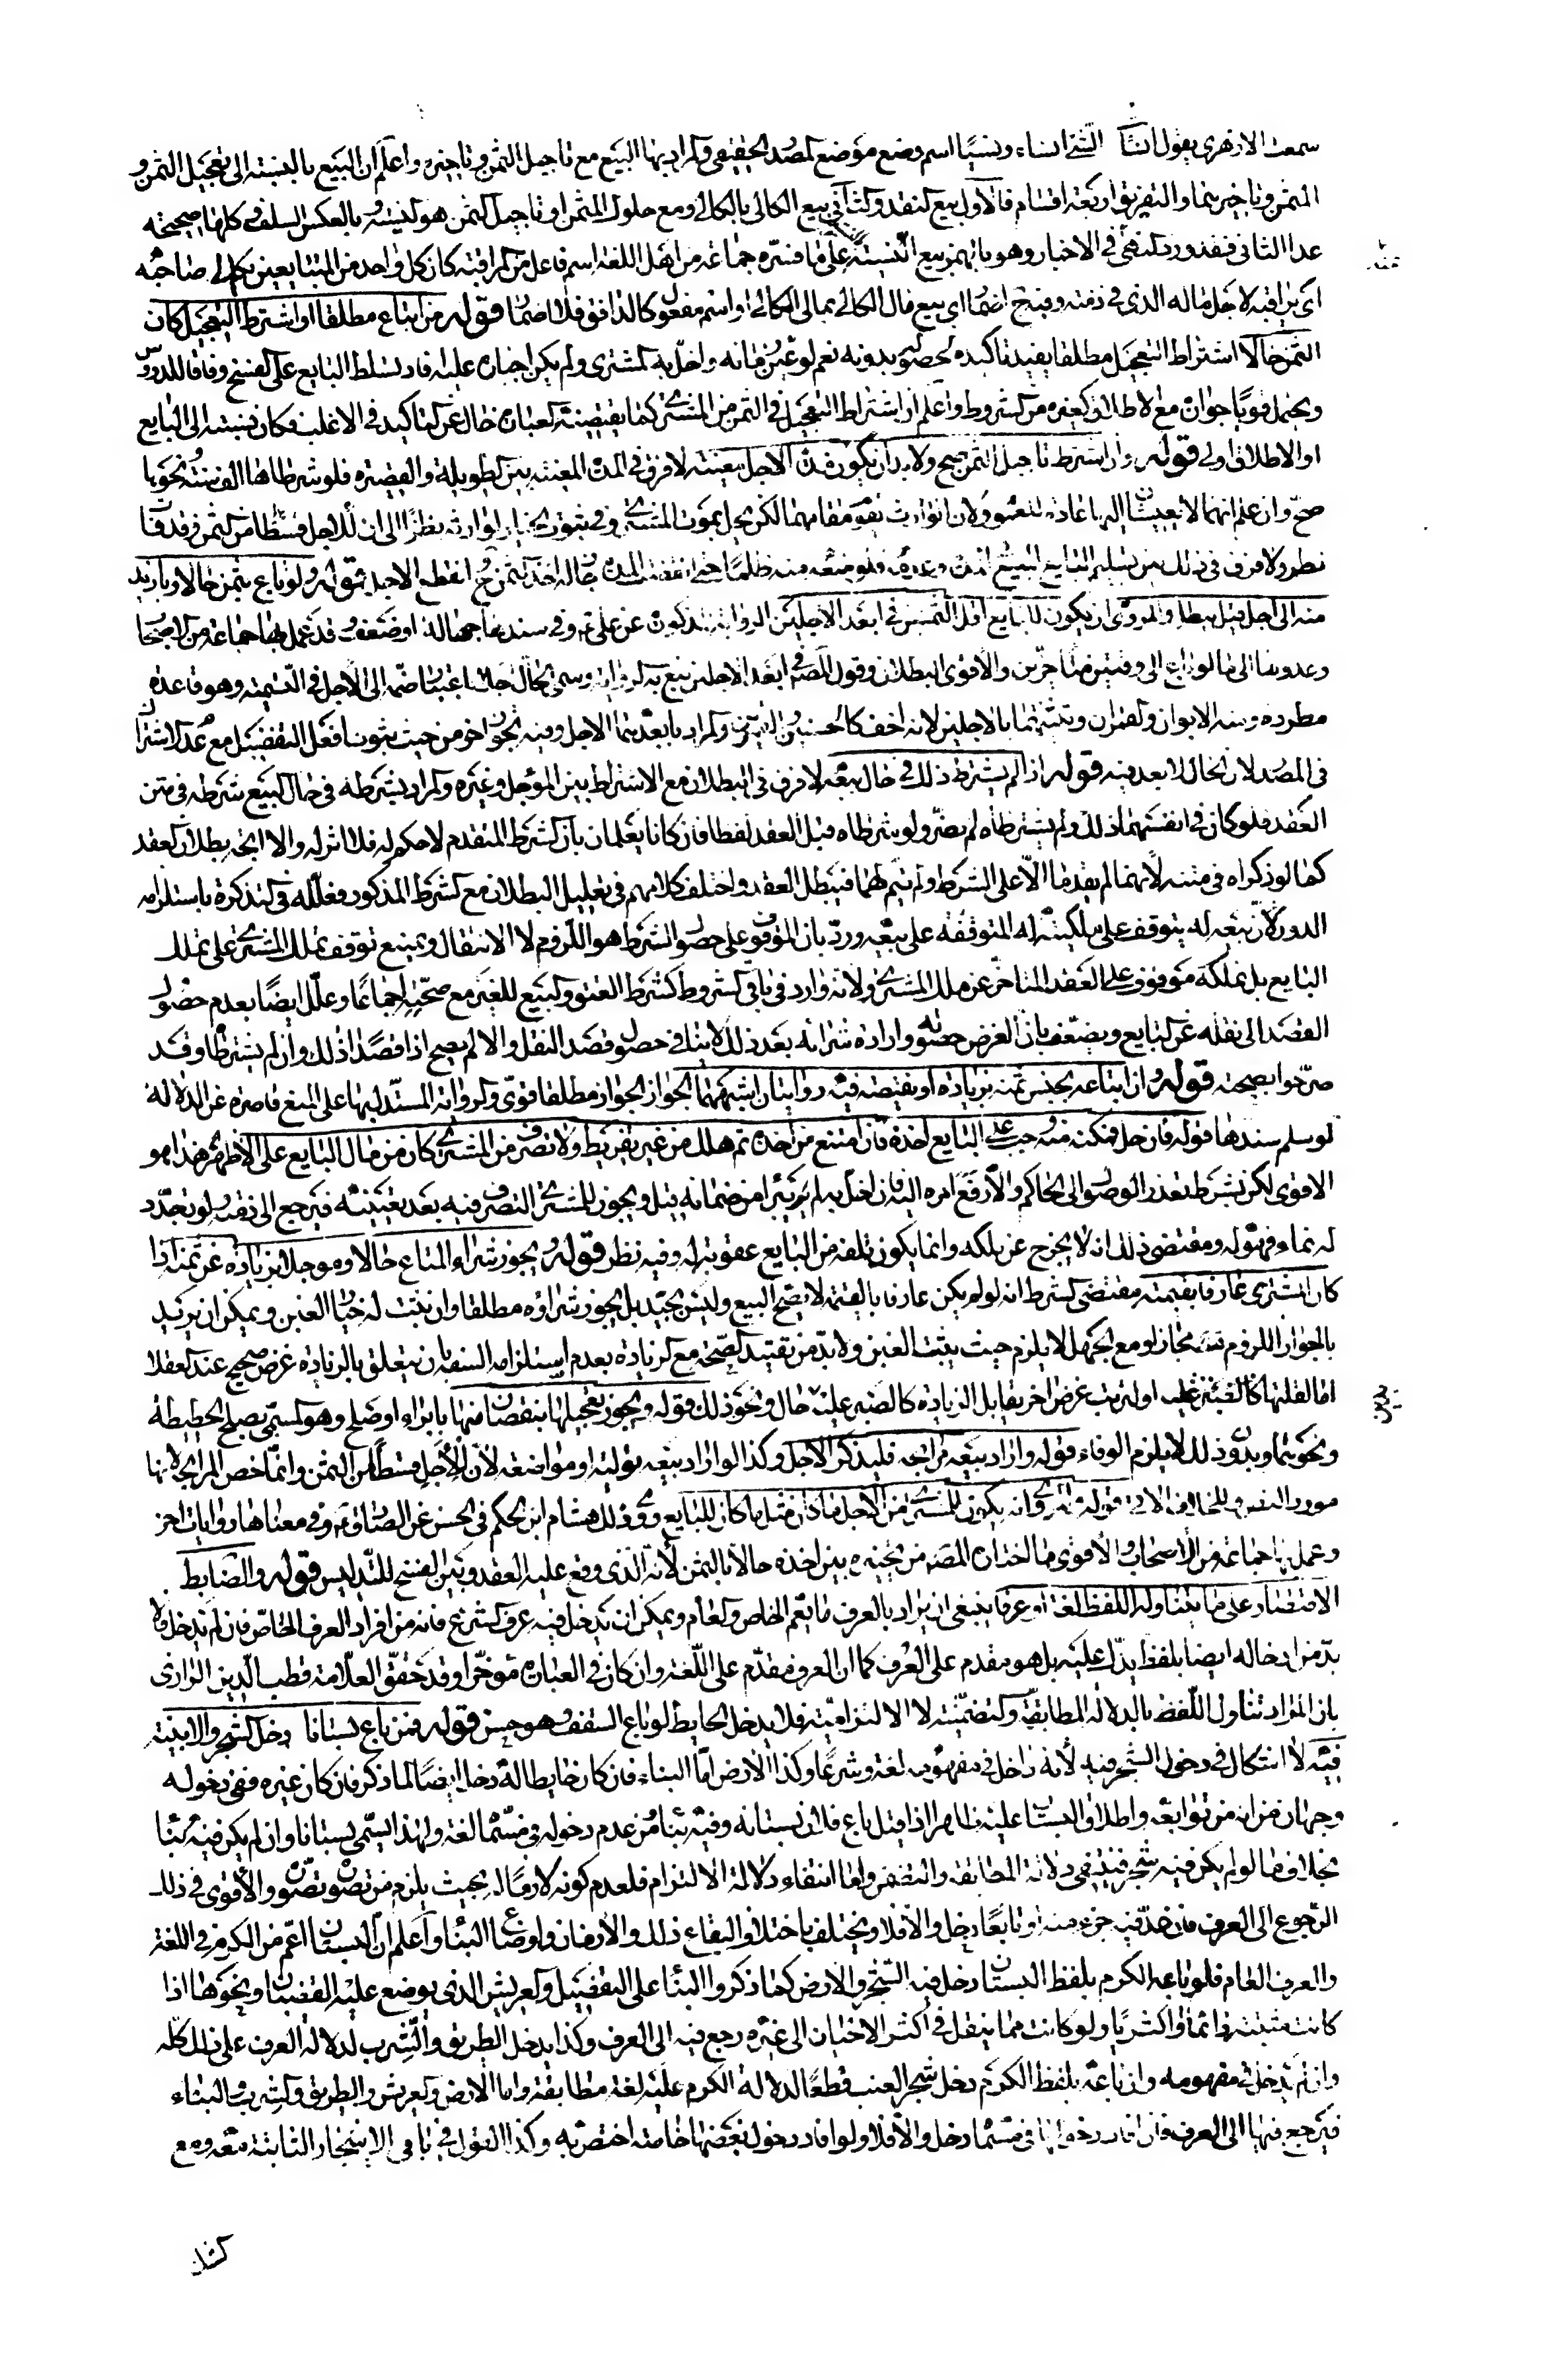 سمعت الازهرى يقول انسأت الشئ انساء ونسيئا اسم وضع موضع المصدر الحقيقى والمراد بها البيع مع تاجيل الثمن وتاخيره واعلم ان البيع بالنسبة الى تعجيل الثمن و
المثمن وتاخيرهما والتفريق اربعة اقسام فالاول بيع النقد والثانى بيع الكالى بالكالى ومع حلول المثمن وتاجيل الثمن هو النسيئة وبالعكس السلف وكلها صحيحة
عدا الثانى فقد ورد النهى فى الاخبار وهو بالهمز بيع النسيئة بالنسيئة على ما فسره جماعة من اهل اللغة اسم فاعل من المراقبة كان كل واحد من المتبايعين يكلى صاحبه
اى يراقبه لاجل ماله الذى فى ذمته وفيه ح اضمار اى بيع مال الكالى بمال الكالى او اسم مفعول كالدافق فلا اضمار قوله من ابتاع مطلقا او اشترط التعجيل كان
الثمن حالا اشتراط التعجيل مطلقا يفيد تاكيده لحصوله بدونه نعم لو عين زمانه واخل به المشترى ولم يكن اجباره عليه افاد تسلط البايع على الفسخ وفاقا للدروس
ويحتمل قويا جوازه مع الاطلاق كغيره من الشروط واعلم ان اشتراط التعجيل فى الثمن من المشترى كما يقتضيه العبارة خال عن التاكيد فى الاغلب فكان نسبته الى البايع
او الاطلاق اولى قوله وان اشترط تاجيل الثمن صح ولا بد ان يكون مدة الاجل معينة لا فرق فى المدة المعينة بين الطويلة والقصيرة فلو شرطاها الف سنة ونحوها
صح وان علم انهما لا يعيشان اليها عادة للعموم ولان الوارث يقوم مقامهما لكن يحل بموت المشترى وفى ثبوت الخيار لوارثه نظرا الى ان للاجل قسطا من الثمن وقد فات
نظر ولا فرق فى ذلك بين تسليم البايع المبيع فى المدة وعدمه فلو منعه منه ظلما حتى انقضت المدة جاز له اخذ الثمن ح انقطع الاجل قوله ولو باع بثمن حالا وبازيد
منه الى اجل قيل يبطل والمروى ان يكون للبايع اقل الثمنين فى ابعد الاجلين الرواية مذكورة عن على ع وفى سندها جهالة او ضعف وقد عمل بها جماعة من الاصحاب
وعدوها الى ما لو باع الى وقتين متاخرين والاقوى البطلان وقول المصنف فى ابعد الاجلين تبع به الرواية وسمى الحال اجلا باعتبار ضمه الى الاجل فى التسمية وهو قاعدة
مطردة ومنه الابوان والقمران وتثنيتهما بالاجلين لانه اخف كالحسنين والعمرين والمراد بابعدهما الاجل وفيه تجوز اخر من حيث ثبوت افعل التفضيل مع عدم الاشتراك
فى المصدر لان الحال لا بعد فيه قوله اذا لم يشترط ذلك فى حال بيعه لا فرق فى البطلان مع الاشتراط بين المؤجل وغيره والمراد بشرطه فى حال البيع شرطه فى متن
العقد فلو كان فى انفسهما ذلك ولم يشترطاه لم يضر ولو شرطاه قبل العقد لفظا فان كانا يعلمان بان الشرط المتقدم لا حكم له فلا اثر له والا اتجه بطلان العقد
كما لو ذكراه فى متنه لانهما لم يقدما الا على الشرط ولم يتم لهما فيبطل العقد واختلف كلامهم فى تعليل البطلان مع الشرط المذكور فعلله فى التذكرة باستلزامه
الدور لان بيعه له يتوقف على ملكيته له المتوقفة على بيعه ورد بان الموقوف على حصول الشرط هو اللزوم لا الانتقال ويمنع توقف تملك المشترى على تملك
البايع بل تملكه موقوف على العقد المتاخر عن ملك المشترى ولانه وارد فى باقى الشروط كشرط العتق والبيع للغير مع صحته اجماعا وعلل ايضا بعدم حصول
القصد الى نقله عن البايع ويضعف بان الغرض حصوله وارادة شرائه بعد ذلك لا ينافى حصول قصد النقل والا لم يصح اذا قصدا ذلك وان لم يشترطاه وقد
صرحوا بصحته قوله وان ابتاعه بجنس ثمنه بزيادة او نقيصة فيه روايتان اشبههما الجواز الجواز مطلقا قوى والرواية المستدل بها على المنع قاصرة عن الدلالة
لو سلم سندها قوله فان حل فمكنه منه وجب على البايع اخذه فان امتنع من اخذه ثم هلك من غير تفريط ولا تصرف من المشترى كان من مال البايع على الاظهر هذا هو
الاقوى لكن بشرط تعذر الوصول الى الحاكم والا رفع امره اليه فان اخل به لم يبرء من ضمانه قيل ويجوز للمشترى التصرف فيه بعد تعيينه فيرجع الى ذمته ولو تجدد
له نماء فهو له ومقتضى ذلك انه لا يخرج عن ملكه وانما يكون تلفه من البايع عقوبة له وفيه نظر قوله ويجوز شراء المتاع حالا ومؤجلا بزيادة عن ثمنه اذا
كان المشترى عارفا بقيمته مقتضى الشرط انه لو لم يكن عارفا بالقيمة لا يصح البيع وليس بجيد بل يجوز شراؤه مطلقا وان يثبت له خيار الغبن ويمكن ان يريد
بالجواز اللزوم مجازا ومع الجهل لا يلزم حيث يثبت الغبن ولا بد من تقييد الصحة مع الزيادة بعدم استلزامه السفه بان يتعلق بالزيادة غرض صحيح عند العقلاء
اما لقلتها او لترتب غرض اخر يقابل الزيادة كالصبر عليه بدين حال ونحو ذلك قوله ويجوز تعجيلها بنقصان منها بابراء او صلح وهو المسمى بصلح الحطيطة
ونحوهما وبدون ذلك لا يلزم الوفاء قوله واذا اراد بيعه مرابحة فليذكر الاجل وكذا لو اراد بيعه تولية او مواضعة لان للاجل قسطا من الثمن وانما خص المرابحة لانها
مورد النص والخلاف الاتى قوله والمروى انه يكون للمشترى من الاجل ما كان مثل ما كان للبايع روى ذلك هشام ابن الحكم فى الحسن عن الصادق ع وفى معناها روايات اخر
وعمل بها جماعة من الاصحاب والاقوى ما اختاره المصنف من تخييره بين اخذه حالا بالثمن لانه الذى وقع عليه العقد وبين الفسخ للتدليس قوله والضابط
الاقتصار على ما يتناوله اللفظ لغة او عرفا ينبغى ان يراد بالعرف ما يعم الخاص والعام ويمكن ان يدخل فيه عرف الشرع فانه من افراد العرف الخاص فان لم يدخل فلا
بد من ادخاله ايضا بلفظ يدل عليه بل هو مقدم على العرف كما ان العرف مقدم على اللغة وان كان فى العبارة مؤخرا وقد حقق العلامة قطب الدين الرازى
بان المراد تناول اللفظ بالدلالة المطابقية والتضمنية لا الالتزامية فلا يدخل الحايط لو باع السقف وهو حسن قوله فمن باع بستانا دخل الشجر والابنية
فيه لا اشكال فى دخول الشجر فيه لانه داخل فى مفهومه لغة وشرعا وكذا الارض اما البناء فان كان حايطا له دخل ايضا لما ذكر فان كان غيره ففى دخوله
وجهان من انه من توابعه واطلاق البستان عليه ظاهرا اذا قيل باع فلان بستانه وفيه بناء من عدم دخوله فى مسماه لغة ولهذا يسمى بستانا وان لم يكن فيه بناء
بخلاف ما لو لم يكن فيه شجر فينتفى دلالة المطابقة والتضمن واما انتفاء دلالة الالتزام فلعدم كونه لازما له بحيث يلزم من تصوره تصوره والاقوى فى ذلك
الرجوع الى العرف فان عد فيه جزء منه او تابعا دخل والا فلا ويختلف باختلاف البقاع ذلك والازمان واوضاع البناء واعلم ان البستان اعم من الكرم فى اللغة
والعرف العام فلو باعه الكرم بلفظ البستان دخل فيه الشجر والارض كما ذكروا البناء على التفصيل والعريش الذى يوضع عليه القضبان ونحوها اذا
كانت مثبتة دائما او اكثريا ولو كانت مما ينقل فى اكثر الاحيان الى غيره رجع فيه الى العرف وكذا يدخل الطريق والشرب لدلالة العرف على ذلك كله
وان لم يدخل فى مفهومه وان باعه بلفظ الكرم دخل شجر العنب قطعا لدلالة الكرم عليه لغة مطابقة واما الارض والعريش والطريق والشرب والبناء
فيرجع فيها الى العرف فان افاد دخولها فى مسماه دخل والا فلا ولو افاد دخول بعضها خاصة اختص به وكذا القول فى باقى الاشجار الثابتة معه ومع